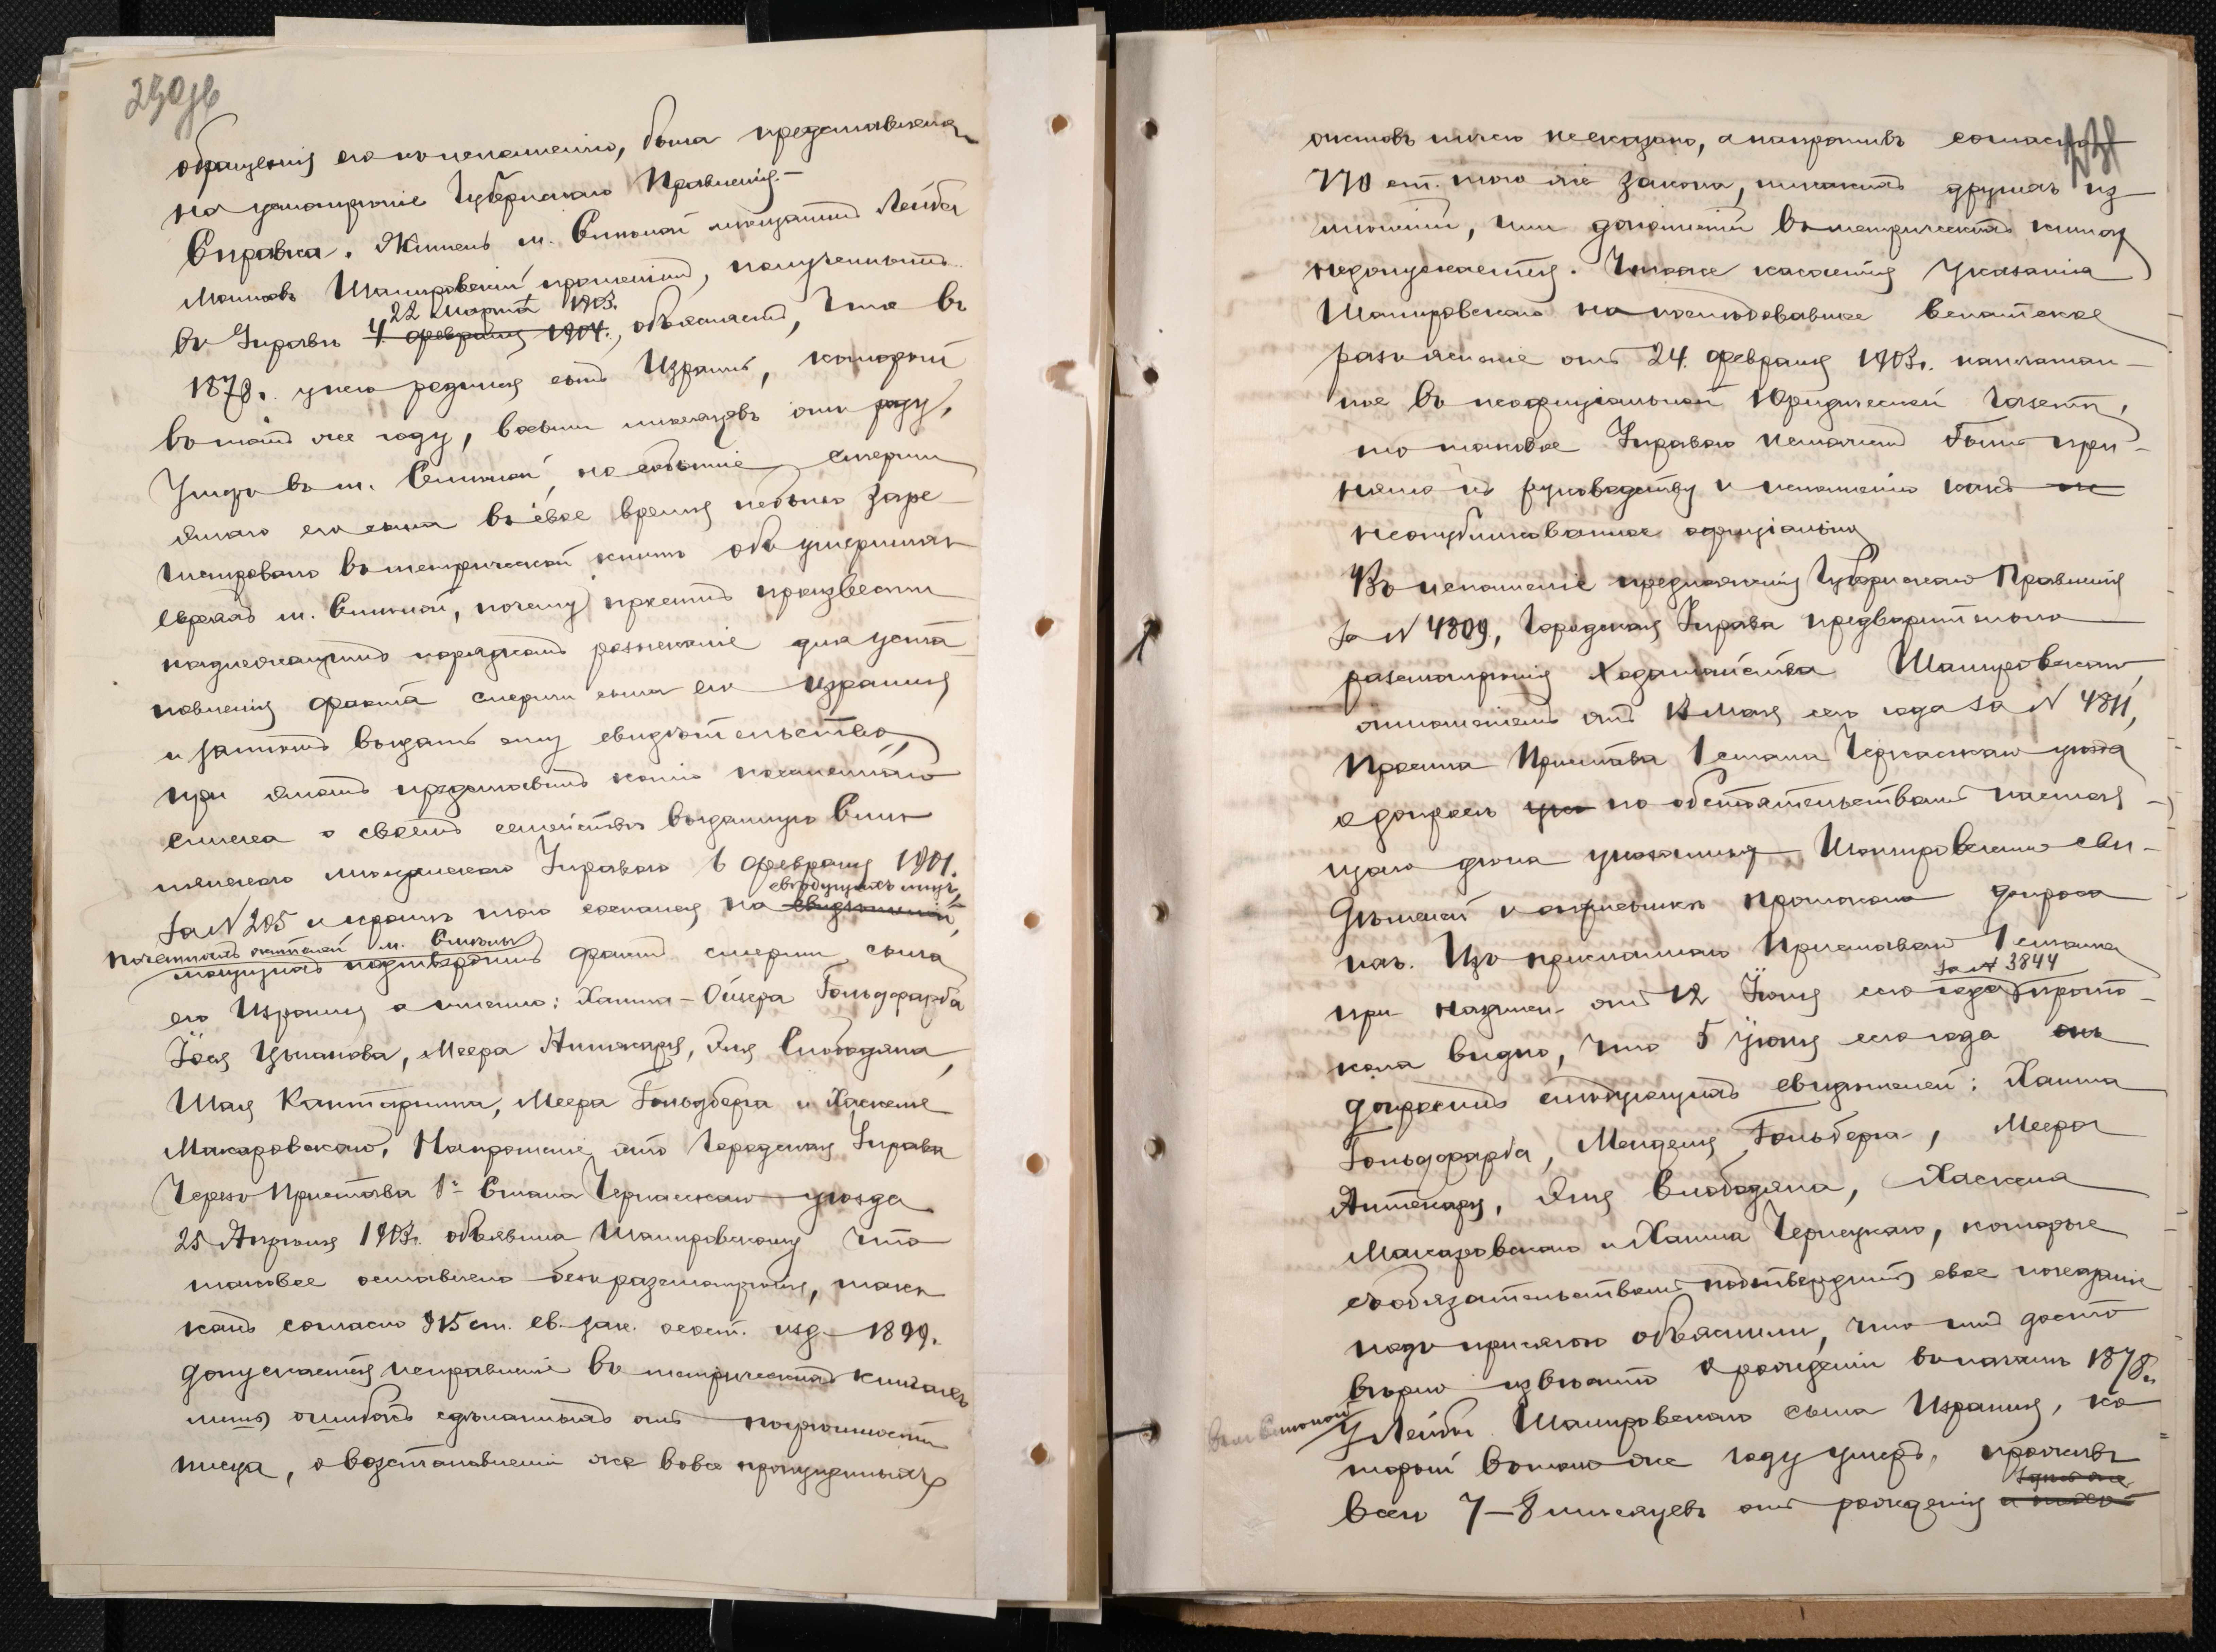 230об
обращенія его къ исполненію, была представлена
на усмотрѣніе Губернскаго Правленія.—
Справка. Житель м. Смѣлой мѣщанинъ Лейба
Шапировскій прошеніемъ, полученнымъ
22 марта 1903.
въ Управѣ 4 февраля 1904., объясняетъ, что въ
1878г. у него родился сынъ Израиль, который
въ томъ же году, восьми мѣсяцевъ отъ роду,
умеръ въ м. Смѣлой, но событіе смерти
этаго его сына въ свое время небыло заре-
гистровано въ метрической книгѣ объ умершихъ
евреяхъ м. Смѣлой, почему проситъ произвести
надлежащимъ порядкомъ розысканіе для уста-
новленія факта смерти сына его Израиля
и затѣмъ выдать ему свидѣтельство,
при этомъ представилъ копію посемейнаго
списка о своемъ семействѣ выданную Смѣ-
лянскою мѣщанскою Управою 6 февраля 1901.
свѣдущихъ лицъ,
за N 205 и кромѣ того сослался на свидѣтелей,
почетныхъ жителей м. Смѣлы
могущихъ подтвердить фактъ смерти сына
его Израиля а именно: Хаима-Ойзера Гольдфарба
Іося Цыганова, Меера Аптекаря, Эля Слободяна,
Шая Кантаржина, Меера Гольдберга и Хаскеля
Макаровскаго. На прошеніе это Городская Управа
Черезъ Пристава 1го Стана Черкасскаго уѣзда
25 Апрѣля 1903г. объявила Шапировскому что
таковое оставлено безъ разсмотрѣнія, такъ
какъ согласно 915 ст. св. зак. о сост. изд. 1899.
допускается исправленіе въ метрическихъ книгахъ
лишь ошибокъ сдѣланныхъ отъ погрѣшности
писца, о возстановленіи же вовсе пропущенныхъ
231
актовъ ничего не сказано, а напротивъ согласно
770 ст. того же закона, никакихъ другихъ из-
мѣненій, или дополненій въ метрическихъ книгахъ
недопускается. Что же касается указанія
Шапировскаго на послѣдовавшее Сенатское
разъясненіе отъ 24 февраля 1903г. напечатан-
ное въ неофиціальной Юридической Газетѣ,
то таковое Управою не можетъ быть при-
нято къ руководству и исполненію какъ не
не опубликованное офиціально
Въ исполненіе предписанія Губернскаго Правленія
за N 4809, Городская Управа предварительно
разсмотрѣнія ходатайства Шапировскаго
отношеніемъ отъ 12 Мая сего года за N 4811,
просила Пристава 1 стана Черкасскаго уѣзда
о допросѣ по обстоятельствамъ настоя-
щаго дѣла указанныхъ Шапировскимъ сви-
дѣтелей и о присылкѣ протокола допроса
ихъ. Изъ присланнаго Приставомъ 1 стана
за N 3844
при надписи отъ 12 Іюня сего года прото-
кола видно, что 5 Іюня сего года онъ
допросилъ слѣдующихъ свидѣтелей: Хаима
Гольдфарба, Менделя Гольберга, Меера
Аптекаря, Эля Слободяна, Хаскеля
Макаровскаго и Хаима Чернецкаго, которые
съ обязательствомъ подтвердить свое показаніе
подъ присягою объяснили, что имъ досто-
вѣрно извѣстно о рожденіи въ началѣ 1878г.
въ м. Смѣлой
у Лейбы Шапировскаго сына Израиля, ко-
торый въ томъ же году умеръ, проживъ
здѣсь же
всего 7—8 мѣсяцевъ отъ рожденія